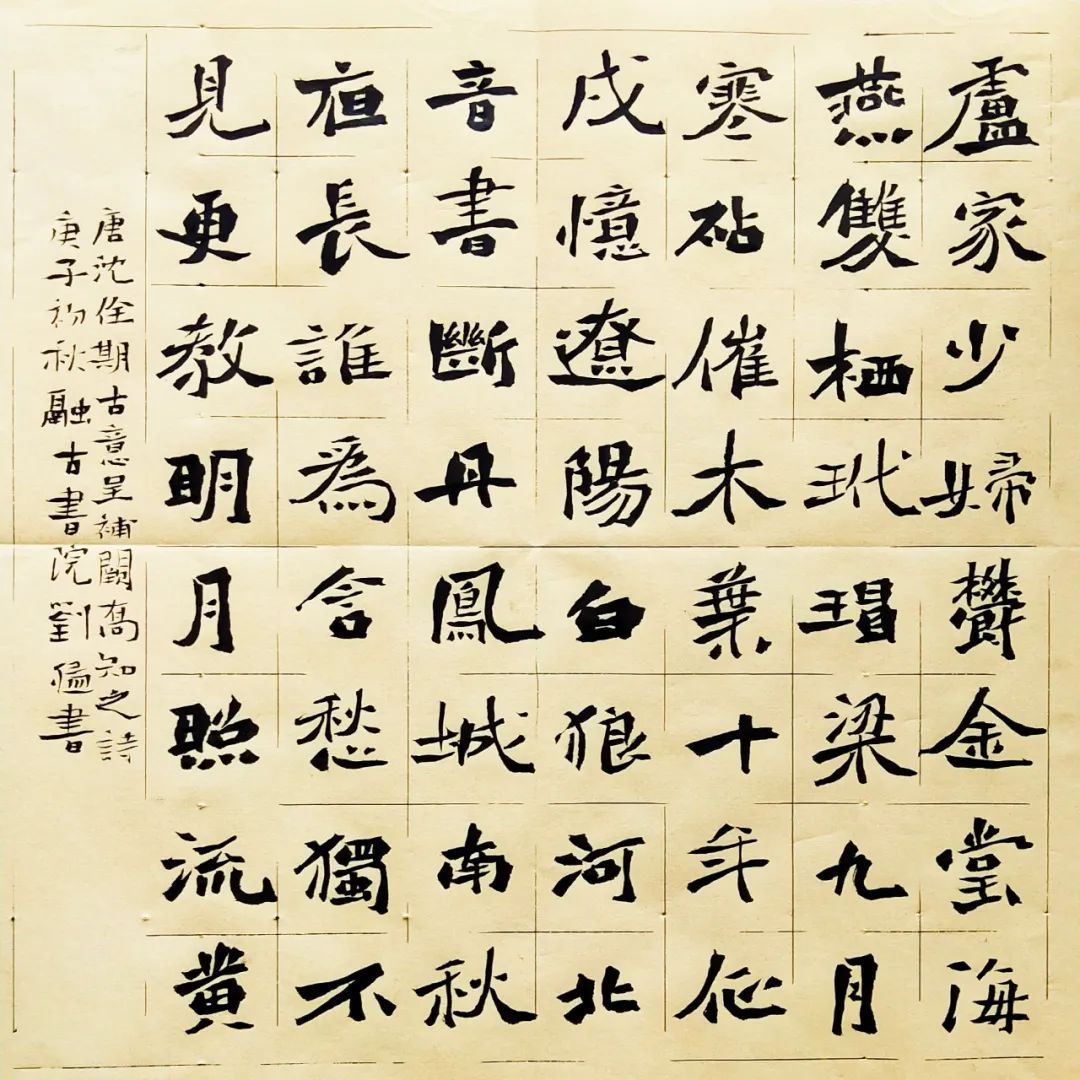 盧家少婦鬱金堂海
燕雙栖玳瑁梁九月
寒砧催木葉十年征
戍憶遼陽白狼河北
音書斷丹鳳城南秋
夜長誰爲含愁獨不
見更教明月照流黄
唐沈佺期古意呈補闕喬知之詩
庚子初秋融古書院劉書